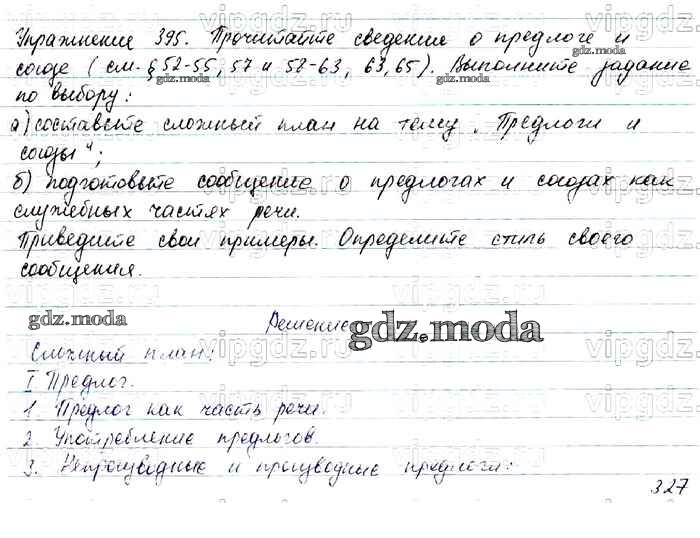 Упражнение 395. Прочитайте сведение о предлоге и
союзе (см. § 52-55, 57 и 58-63, 63,65). Выполните задание
по выбору:
а) составьте сложный план на тему „Предлоги и
союзы";
б) подготовьте сообщение о предлогах и союзах как
служебных частях речи.
Приведите свои примеры. Определите стиль своего
сообщения.
Решение
Сложный план:
I Предлог.
1. Предлог как часть речи.
2. Употребление предлогов.
3. Непроизводные и производные предлоги:
327
gdz.moda
gdz.moda
gdz.moda
vipgdz.ru